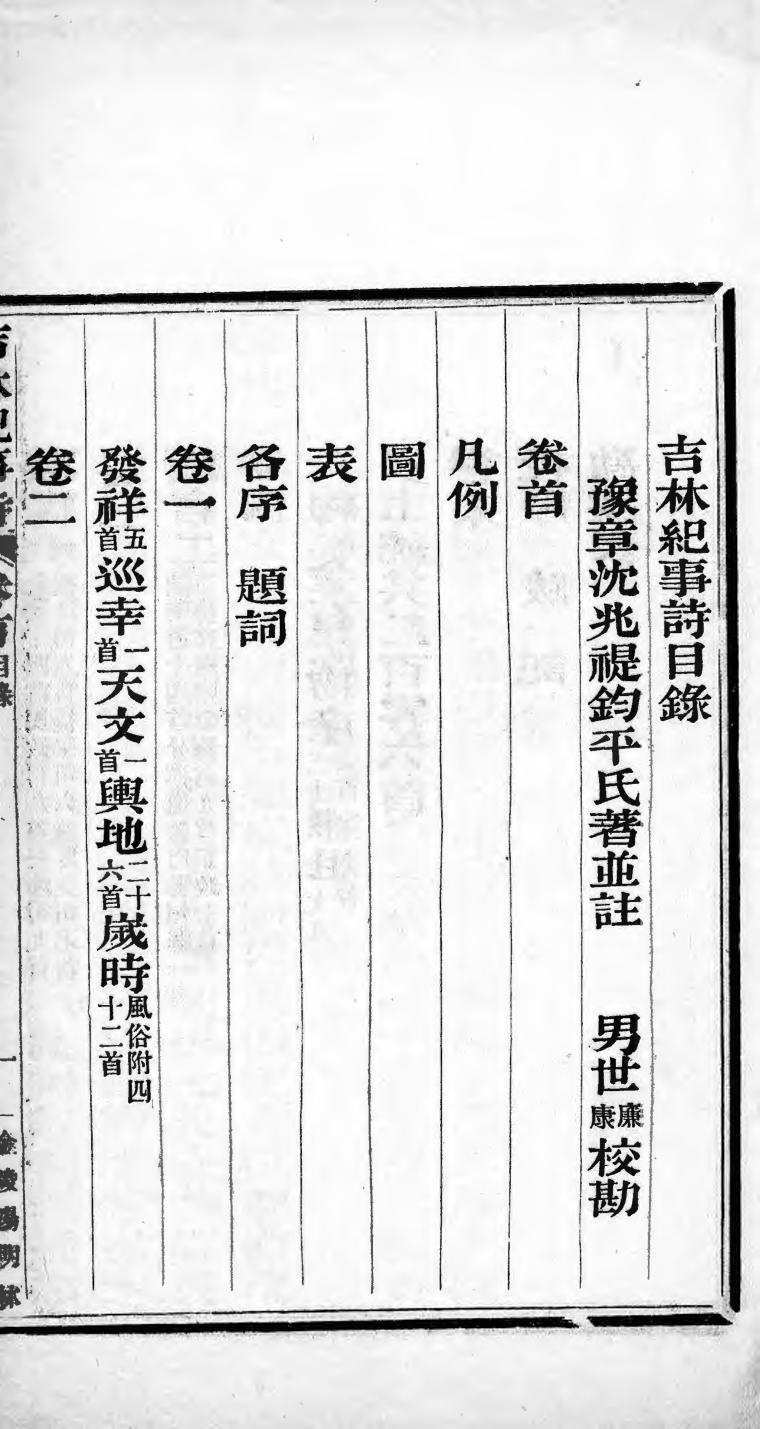 吉林紀事詩目錄
豫章沈兆禔鈞平氏著並註　男世廉康校勘
卷首
凡例
圖
表
各序　題詞
卷一
發祥五首巡幸一首天文一首輿地二十六首歲時風俗附四十二首
卷二
吉林紀事詩　卷首目錄　一